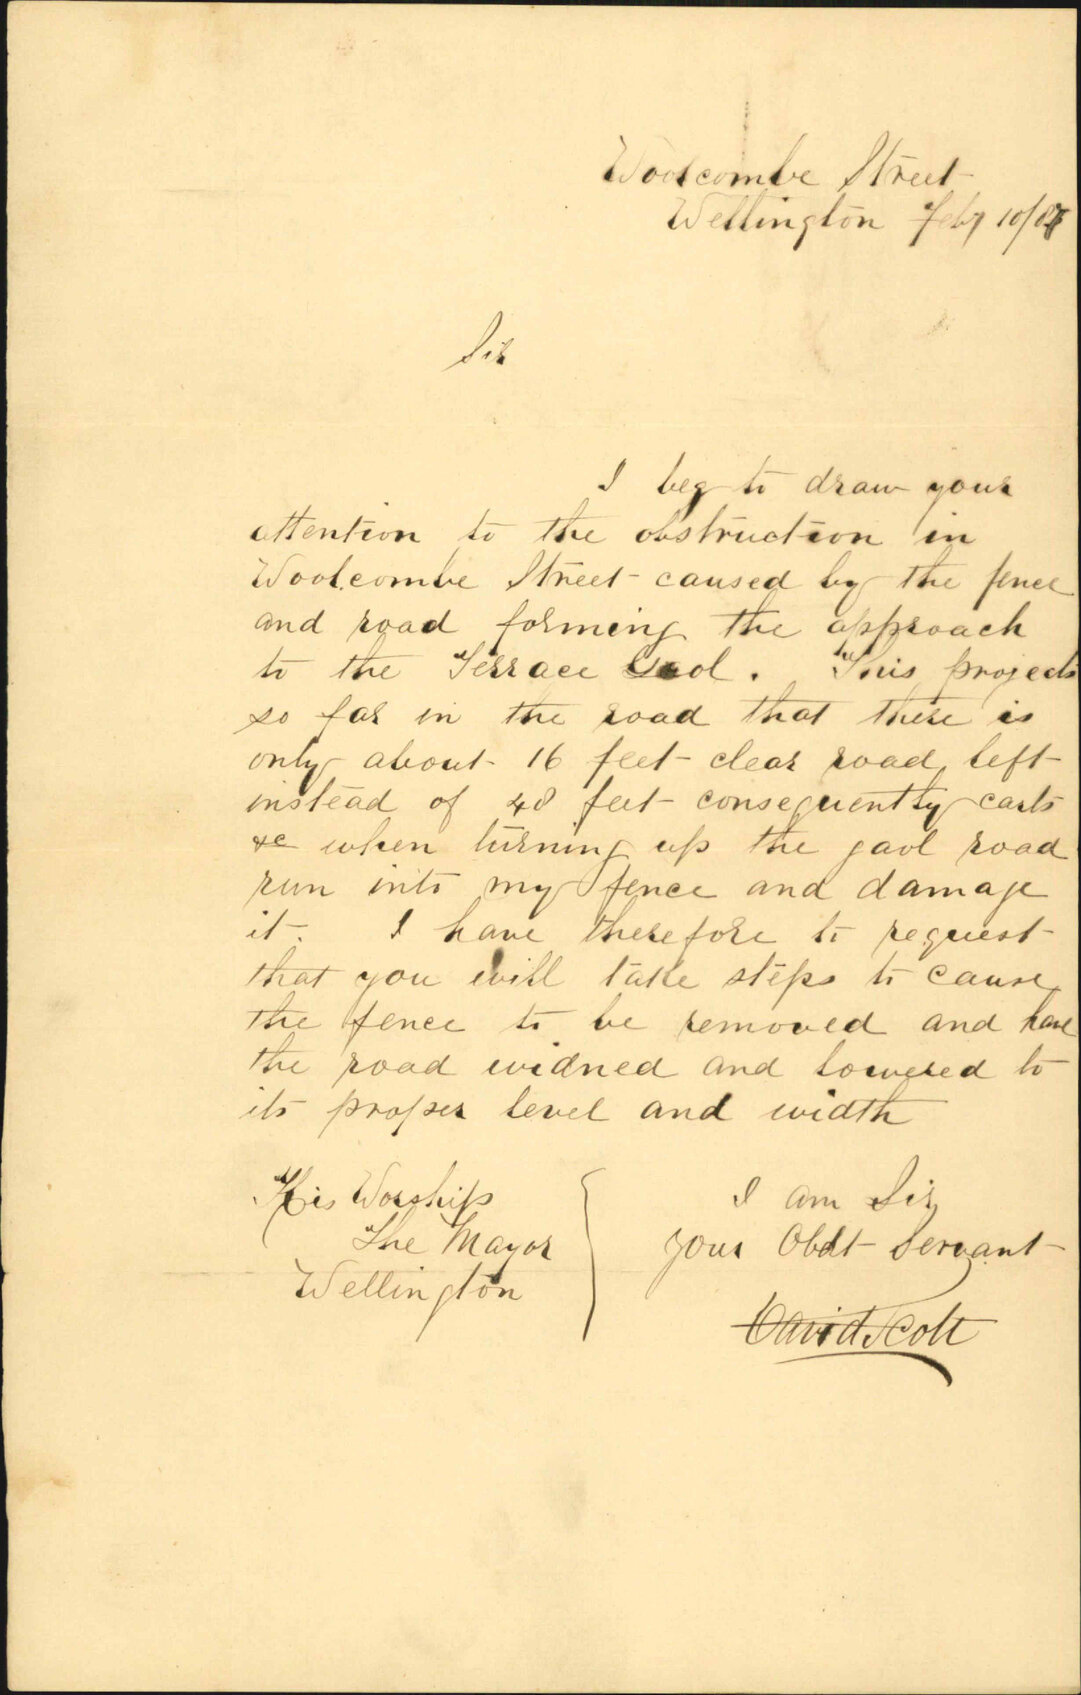 Woolcombe Street
Wellington Feby 10/87
Sir
I beg to draw your
attention to the obstruction in
Woolcombe Street caused by the fence
and road forming the approach
to the Terrace Gaol. This projects
so far in the road that there is
only about 16 feet clear road left
instead of 48 feet consequently carts
&c when turning up the gaol road
run into my fence and damage
it. I have therefore to request
that you will take steps to cause
the fence to be removed and have
the road widned and lowered to
its proper level and width
I am Sir
your Obdt Servant
David Scott
His Worship
The Mayor
Wellington